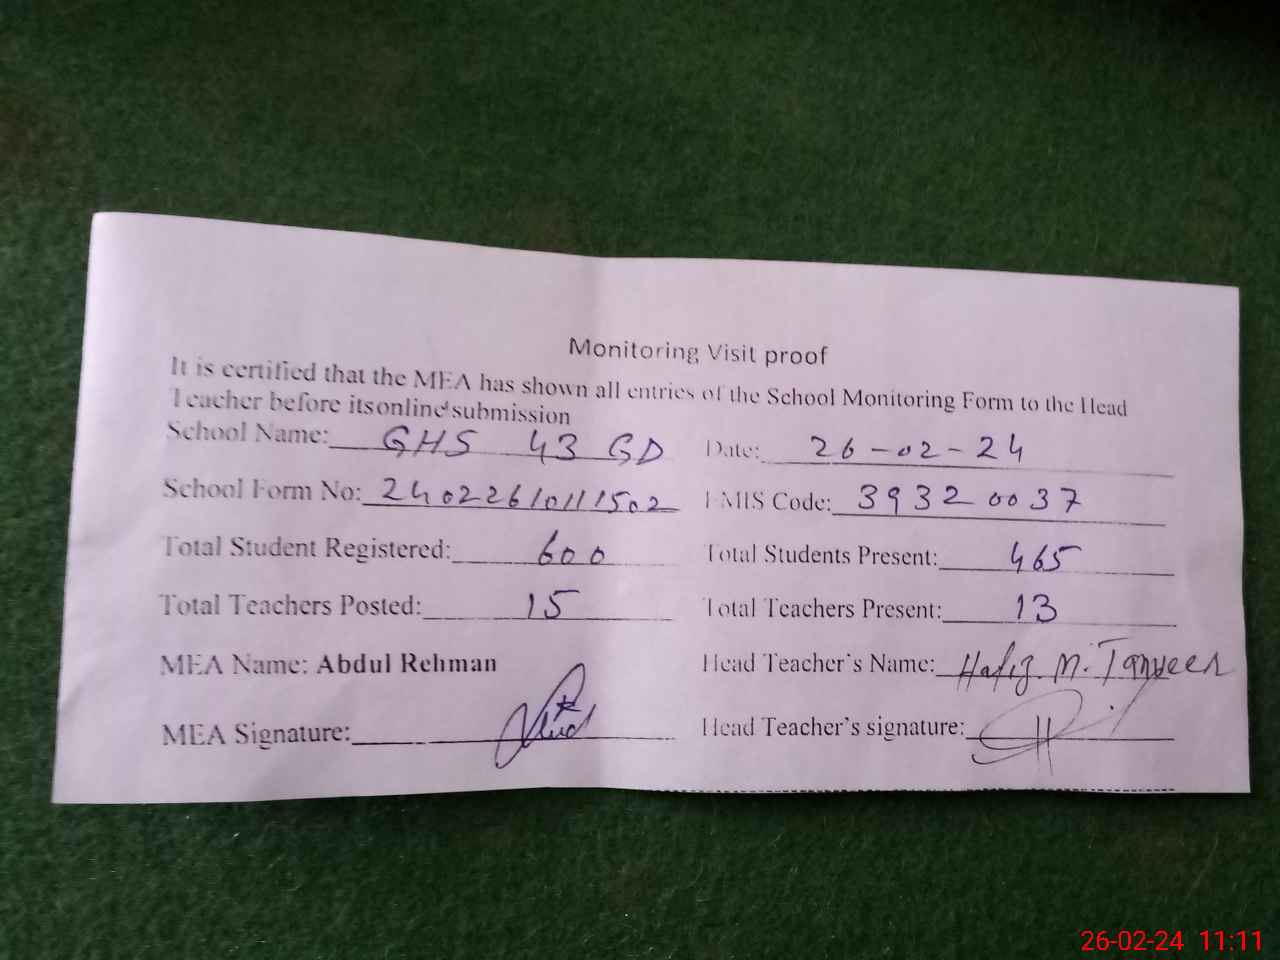 Monitoring Visit proof
It is certified that the MEA has shown all entries of the School Monitoring Form to the Head
Teacher before itsonline submission
School Name: GHS 43 GD Date: 26-02-24
School Form No: 24022610111502 EMIS Code: 39320037
Total Student Registered: 600 Total Students Present: 465
Total Teachers Posted: 15 Total Teachers Present: 13
MEA Name: Abdul Rehman Head Teacher's Name: Hafiz M. Tanveer
MEA Signature: Head Teacher's signature:
26-02-24 11:11